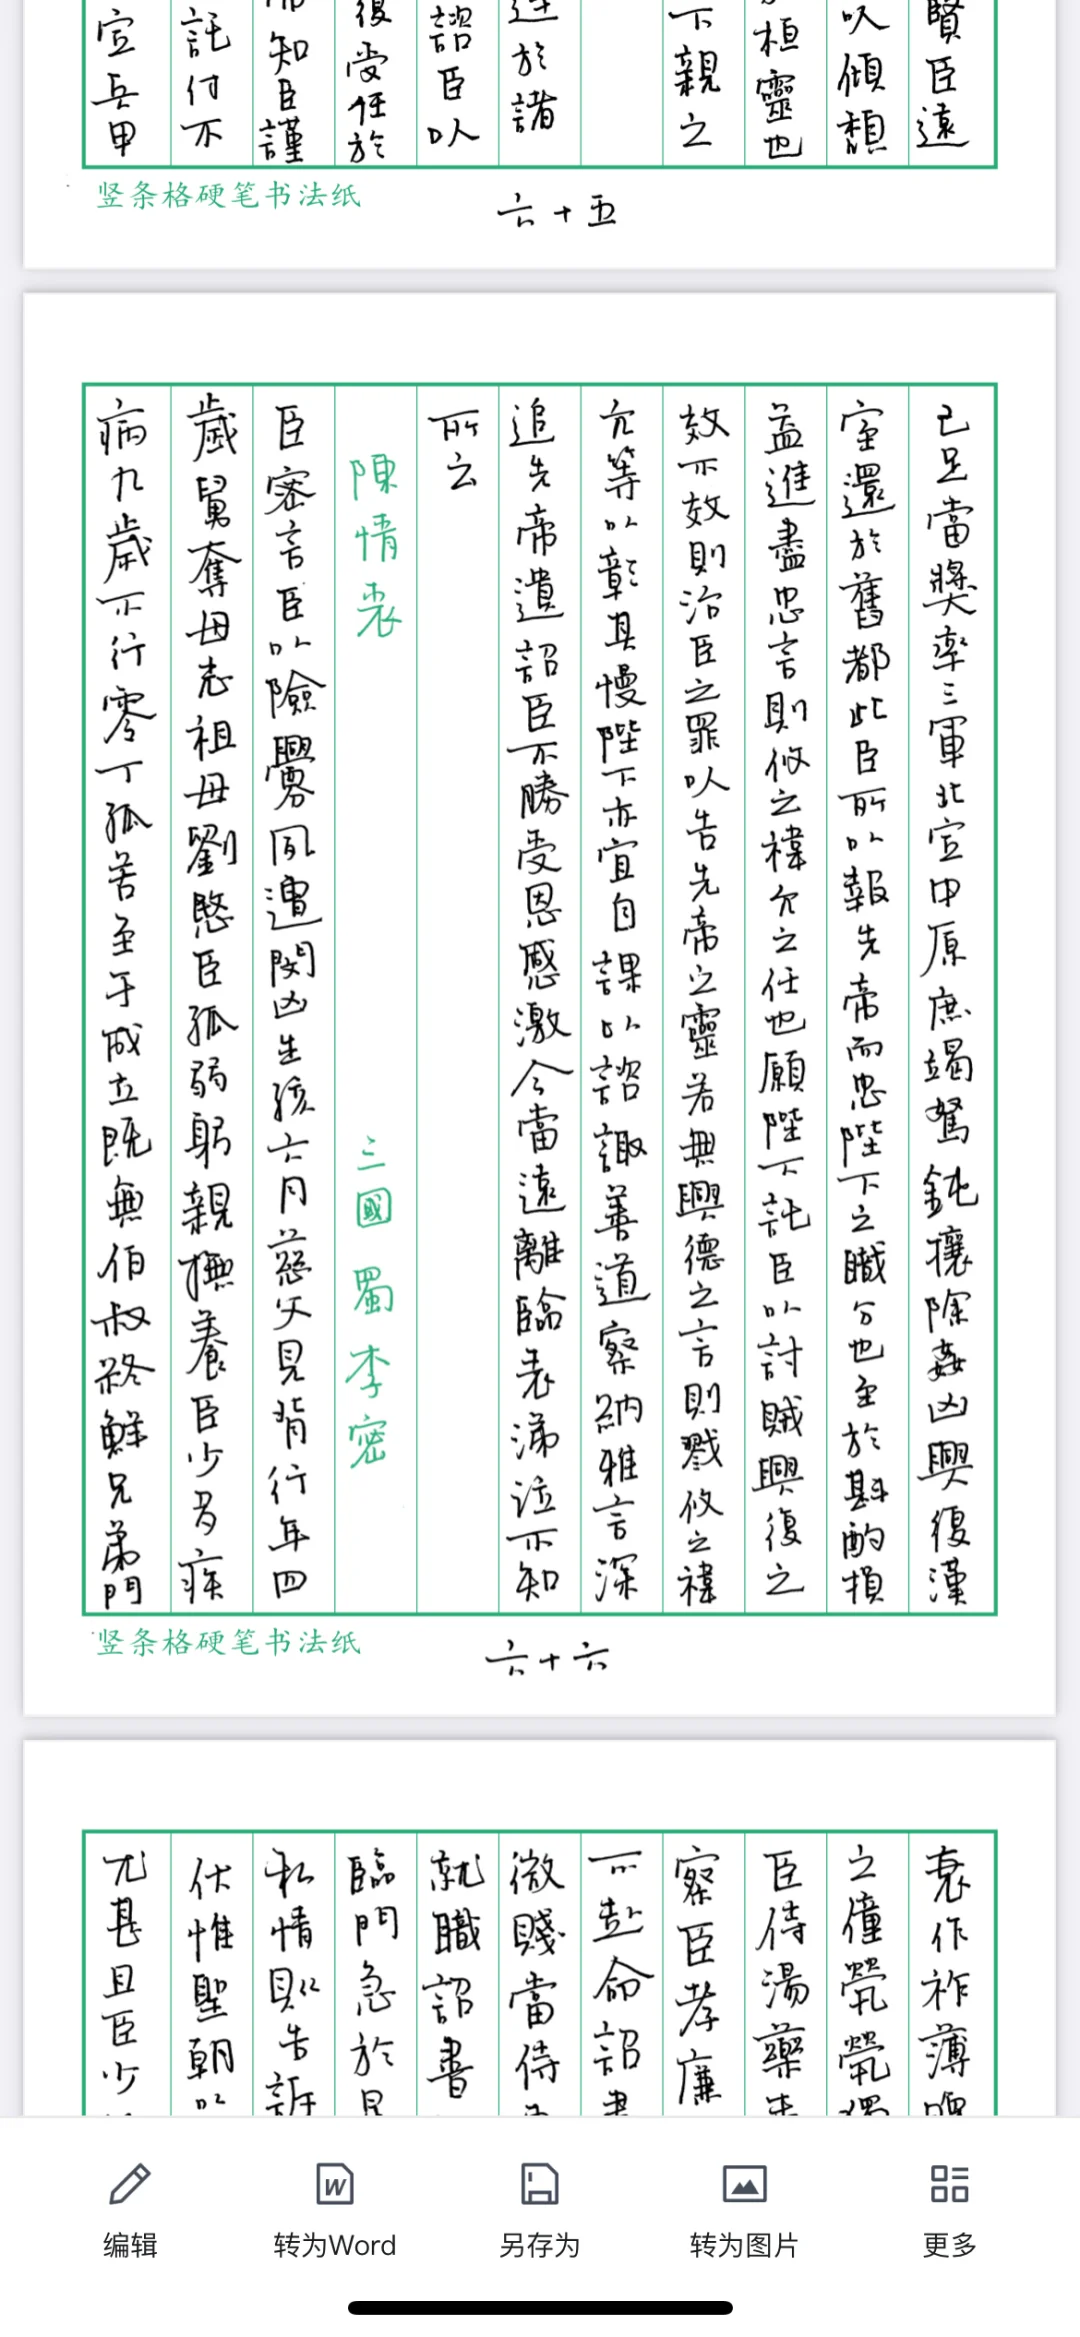 賢臣遠
以傾頹
桓靈也
下親之
於諸
諮臣以
後受任於
知臣謹
託付不
宜兵甲
竖条格硬笔书法纸
六十五
已足當獎率三軍北定中原庶竭駑鈍攘除姦凶興復漢
室還於舊都此臣所以報先帝而忠陛下之職分也至於斟酌損
益進盡忠言則攸之禕允之任也願陛下託臣以討賊興復之
效不效則治臣之罪以告先帝之靈若無興德之言則戮攸之禕
允等以彰其慢陛下亦宜自課以諮諏善道察納雅言深
追先帝遺詔臣不勝受恩感激今當遠離臨表涕泣不知
所云
陳情表 三國 蜀 李密
臣密言臣以險釁夙遭閔凶生孩六月慈父見背行年四
歲舅奪母志祖母劉愍臣孤弱躬親撫養臣少多疾
病九歲不行零丁孤苦至于成立既無伯叔終鮮兄弟門
竖条格硬笔书法纸
六十六
衰祚薄晚
之僮煢煢獨
臣侍湯藥
察臣孝廉
不赴命詔書
微賤當侍
就職詔書
臨門急於星
私情則告訴
伏惟聖朝以
尤甚且臣少
编辑
转为Word
另存为
转为图片
更多